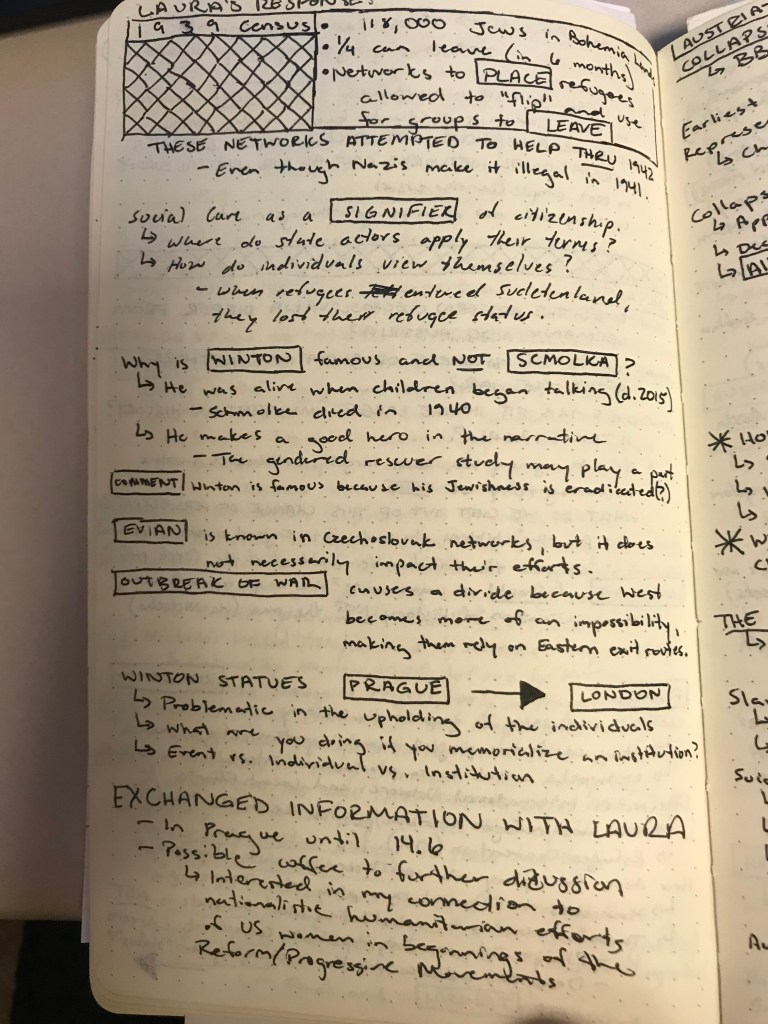 LAURA'S RESPONSE:
1939 Census
• 118,000 Jews in Bohemia Lands
• 1/4 can leave (in 6 months)
• Networks to PLACE refugees
allowed to "flip" and use
for groups to LEAVE
THESE NETWORKS ATTEMPTED TO HELP THRU 1942
- Even though Nazis make it illegal in 1941.
Social Care as a SIGNIFIER of citizenship.
↳ Where do state actors apply their terms?
↳ How do individuals view themselves?
- When refugees entered Sudetenland,
they lost their refugee status.
Why is WINTON famous and NOT SCMOLKA?
↳ He was alive when children began talking (d. 2015)
- Schmolke died in 1940
↳ He makes a good hero in the narrative
- The gendered rescuer study may play a part
COMMENT Winton is famous because his Jewishness is eradicated(?)
EVIAN is known in Czechoslovak networks, but it does
not necessarily impact their efforts.
OUTBREAK OF WAR causes a divide because West
becomes more of an impossibility,
making them rely on Eastern exit routes.
WINTON STATUES PRAGUE → LONDON
↳ Problematic in the upholding of the individuals
↳ What are you doing if you memorialize an institution?
↳ Event vs. Individual vs. Institution
EXCHANGED INFORMATION WITH LAURA
- In Prague until 14.6
- Possible coffee to further discussion
↳ Interested in my connection to
nationalistic humanitarian efforts
of US women in beginnings of the
Reform/Progressive Movements
AUSTRIA
COLLAPS
↳ BB
Earliest
Represe
↳ Ch
Collaps
↳ App
↳ Dec
↳
HO
↳
↳
↳
W
THE
↳
Sla
↳
↳